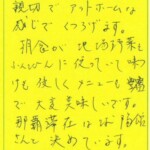 親切でアットホームな
感じでくつろげます。
朝食が地場野菜を
ふんだんに使っていて味わ
けも優しくメニューも豊富
で大変美味しいです。
那覇滞在はは
さんと決めています。